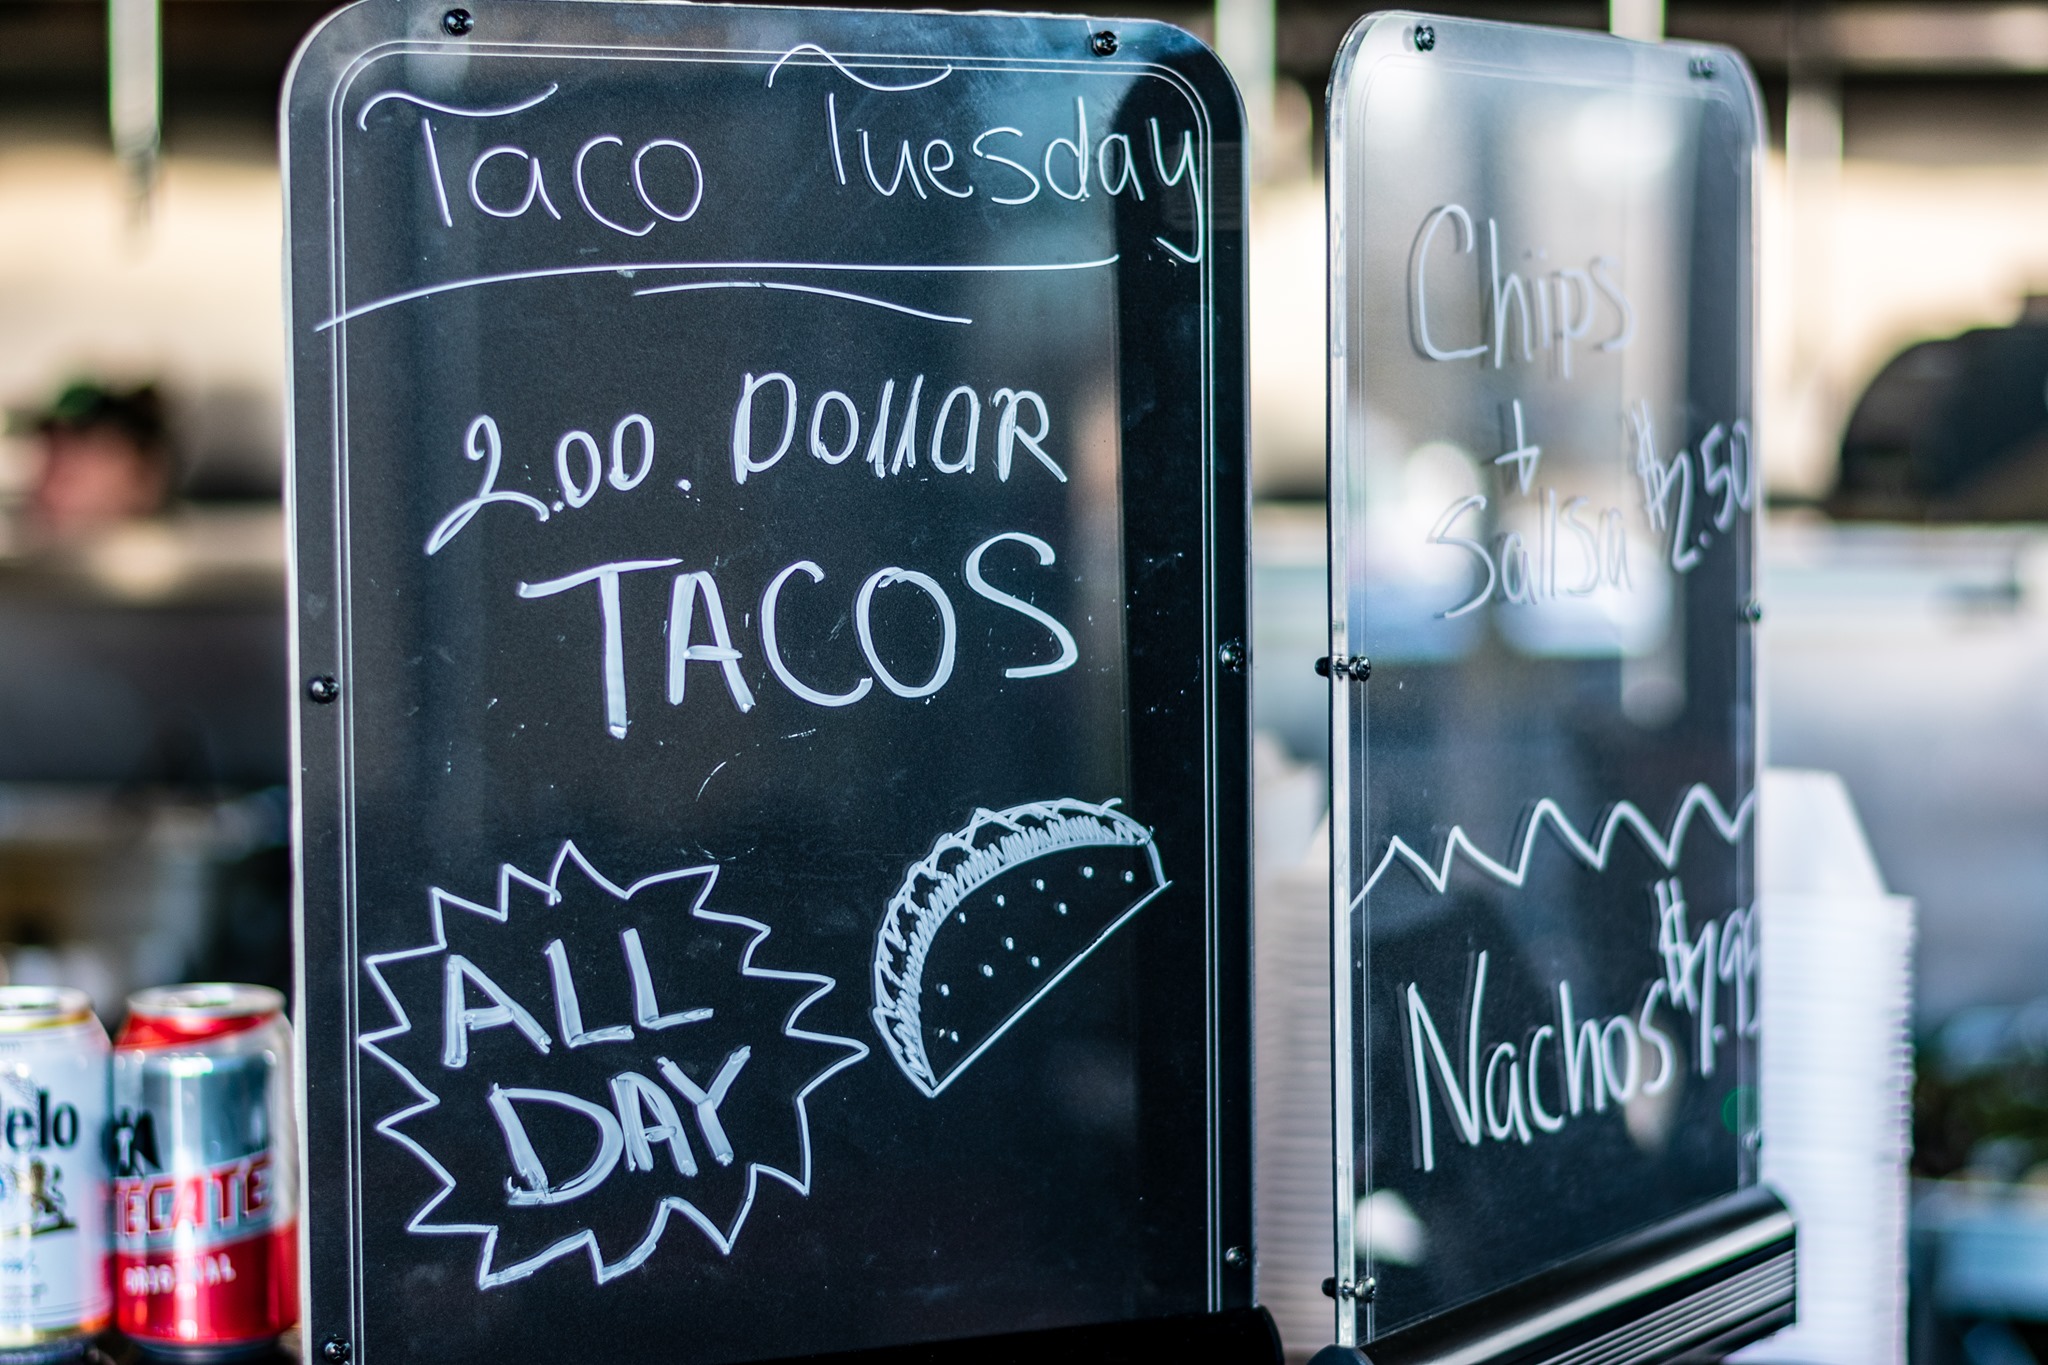 Taco Tuesday
2.00. Dollar
TACOS
ALL
DAY
Chips
+
Sallsa $2.50
Nachos $7.95
TECATE
ORIGINAL